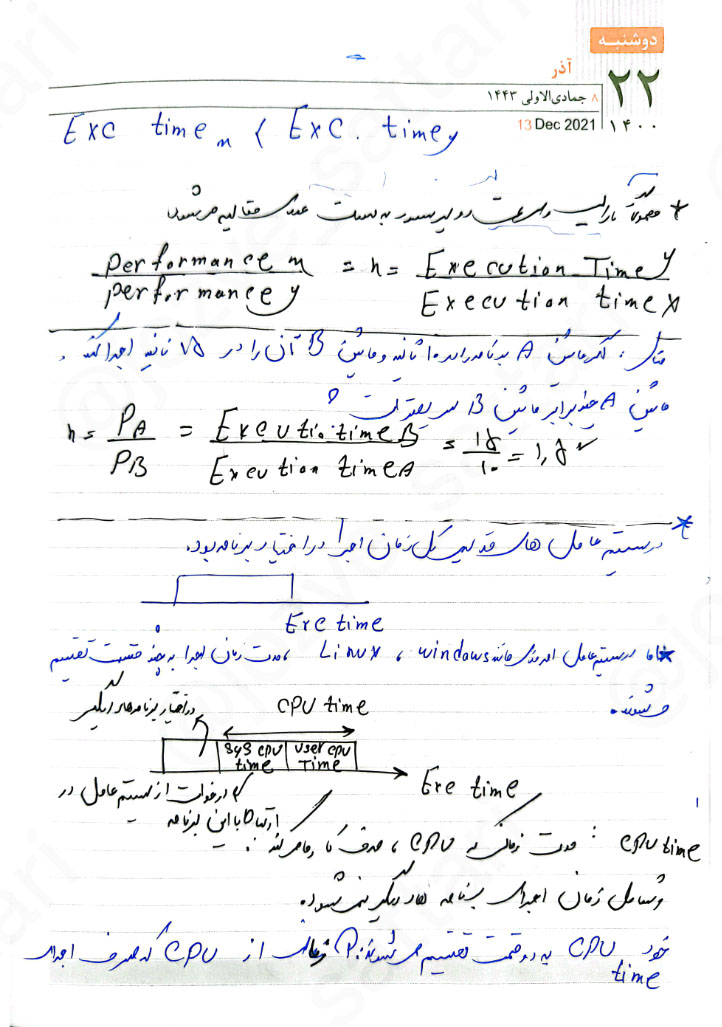 دوشنبه
آذر
۲۲
۸ جمادی‌الاولی ۱۴۴۳
13 Dec 2021
۱۴۰۰
Exc time m < Exc. time y
* معمولاً با پردازنده به نسبت عددی مقایسه می‌شوند
performance m / performance y = n = Execution Time y / Execution time x
مثال: اگر ماشین A برنامه را در ۱۰ ثانیه و ماشین B آن را در ۱۵ ثانیه اجرا کند،
ماشین A چند برابر ماشین B سریعتر است؟
n = PA / PB = Execution time B / Execution time A = ۱۵ / ۱۰ = ۱,۵
* در سیستم عامل های قدیمی کل زمان اجرا در اختیار برنامه بود.
Exe time
* اما در سیستم عامل امروزی مانند windows ، Linux ، مدت زمان اجرا به چند قسمت تقسیم
می‌شوند.
در اختیار برنامه‌های دیگر
CPU time
sys cpu time
user cpu Time
Exe time
درخواست از سیستم عامل در
ارتباط با این برنامه
CPU time : مدت زمانی که CPU ، صرف کار ما می‌کند.
و شامل زمان اجرای برنامه های دیگر نمی‌شود.
خود CPU time به دو قسمت تقسیم می‌شود: زمانی از CPU که صرف اجرای